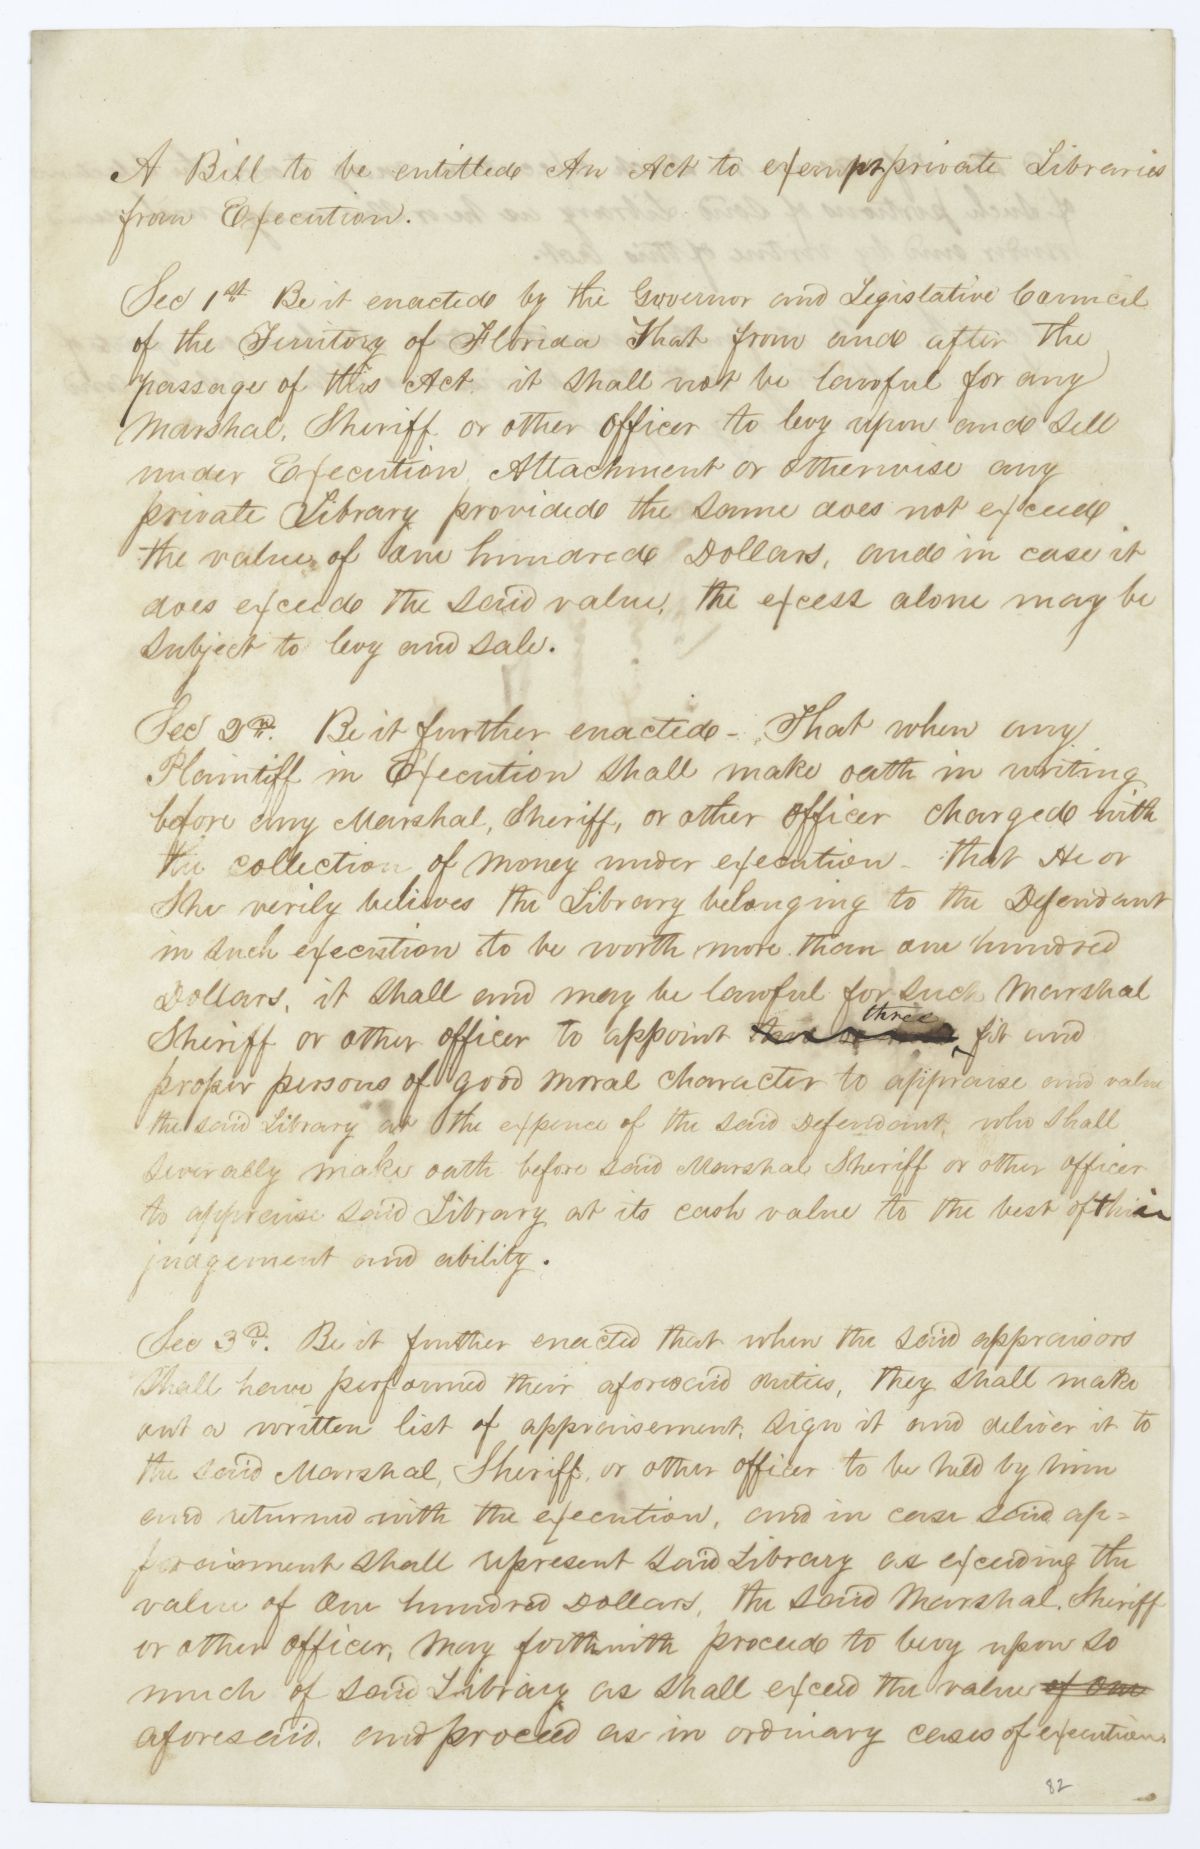 A Bill to be entitled An Act to exempt private Libraries
from Execution.
Sec 1st Be it enacted by the Governor and Legislative Council
of the Territory of Florida That from and after the
passage of this Act it shall not be lawful for any
Marshal, Sheriff or other officer to levy upon and sell
under Execution, Attachment or otherwise any
private Library provided the same does not exceed
the value of one hundred Dollars, and in case it
does exceed the said value, the excess alone may be
subject to levy and sale.
Sec 2d. Be it further enacted - That when any
Plaintiff in Execution shall make oath in writing
before any Marshal, Sheriff, or other officer charged with
the collection of money under execution - that He or
She verily believes the Library belonging to the Defendant
in such execution to be worth more than one hundred
Dollars, it shall and may be lawful for such Marshal
Sheriff or other officer to appoint three fit and
proper persons of good moral character to appraise and value
the said Library at the expence of the said Defendant, who shall
severally make oath before said Marshal Sheriff or other officer
to appraise said Library at its cash value to the best of their
judgement and ability.
Sec 3d. Be it further enacted that when the said appraisors
shall have performed their aforesaid duties, they shall make
out a written list of appraisement, sign it and deliver it to
the said Marshal, Sheriff, or other officer to be held by him
and returned with the execution, and in case said ap=
praisment shall represent said Library as exceeding the
value of One hundred Dollars, the said Marshal, Sheriff
or other officer, may forthwith proceed to levy upon so
much of said Library as shall exceed the value of One
aforesaid, and proceed as in ordinary cases of execution.
82